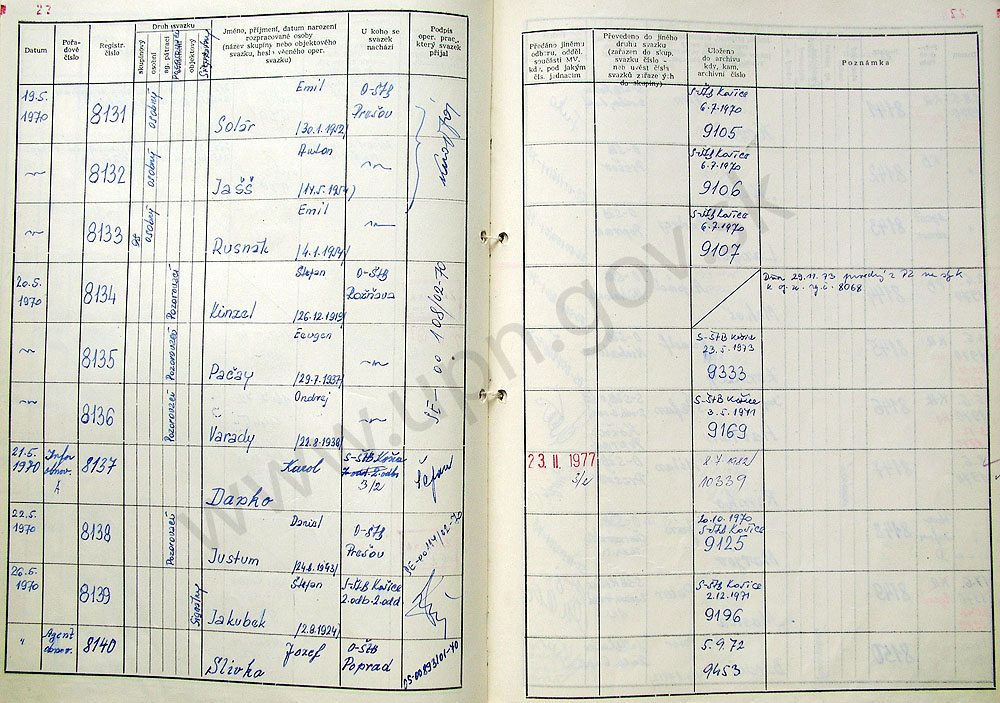 23
Datum
Pořadové číslo
Registr. číslo
Druh svazku
skupinový
osobní
ag. pátrací
Pozorovací
objektový
Signálny
Jméno, příjmení, datum narození
rozpracované osoby
(název skupiny nebo objektového
svazku, heslo věcného oper.
svazku)
U koho se
svazek
nachází
Podpis
oper. prac.,
který svazek
přijal
Předáno jinému
odboru, odděl.
součásti MV,
kdy, pod jakým
čís. jednacím
Převedeno do jiného
druhu svazku
(zařazen do skup.
svazku číslo -
neb uvést čísla
svazků zařaze ých
do skupiny)
Uloženo
do archivu
kdy, kam,
archivní číslo
Poznámka
19.5. 1970
8131
osobný
Emil
Solár /30.1.1912/
O-ŠtB
Prešov
S-ŠtB Košice
6.7.1970
9105
8132
osobný
Anton
Jašš /14.5.1954/
S-ŠtB Košice
6.7.1970
9106
8133
osobný
Emil
Rusnák /4.1.1954/
S-ŠtB Košice
6.7.1970
9107
20.5. 1970
8134
Pozorovací
Štefan
Kinzel /26.12.1919/
O-ŠtB
Rožňava
ŠE-00108/02-70
Dňa 29.11.73
8068
8135
Pozorovací
Eugen
Pačay /29.7.1937/
S-ŠtB Košice
23.5.1973
9333
8136
Pozorovací
Ondrej
Varady /21.8.1938/
S-ŠTB Košice
3.5.1971
9169
21.5. 1970
8137
Karol
Dapko
S-ŠtB Košice
3/2
Štefan
23. II. 1977
8.7.1982/
10339
22.5. 1970
8138
Pozorovací
Daniel
Justum /24.8.1943/
O-ŠtB
Prešov
20.10.1970
S-ŠtB Košice
9125
26.5. 1970
8139
Signálny
Štefan
Jakubek /2.8.1924/
S-ŠtB Košice
2.odb-2.odd
S-ŠtB Košice
2.12.1971
9196
"
Agent
8140
Jozef
Slivka
O-ŠtB
Poprad
OS-00893/01-70
5.9.72
9453
www.upn.gov.sk